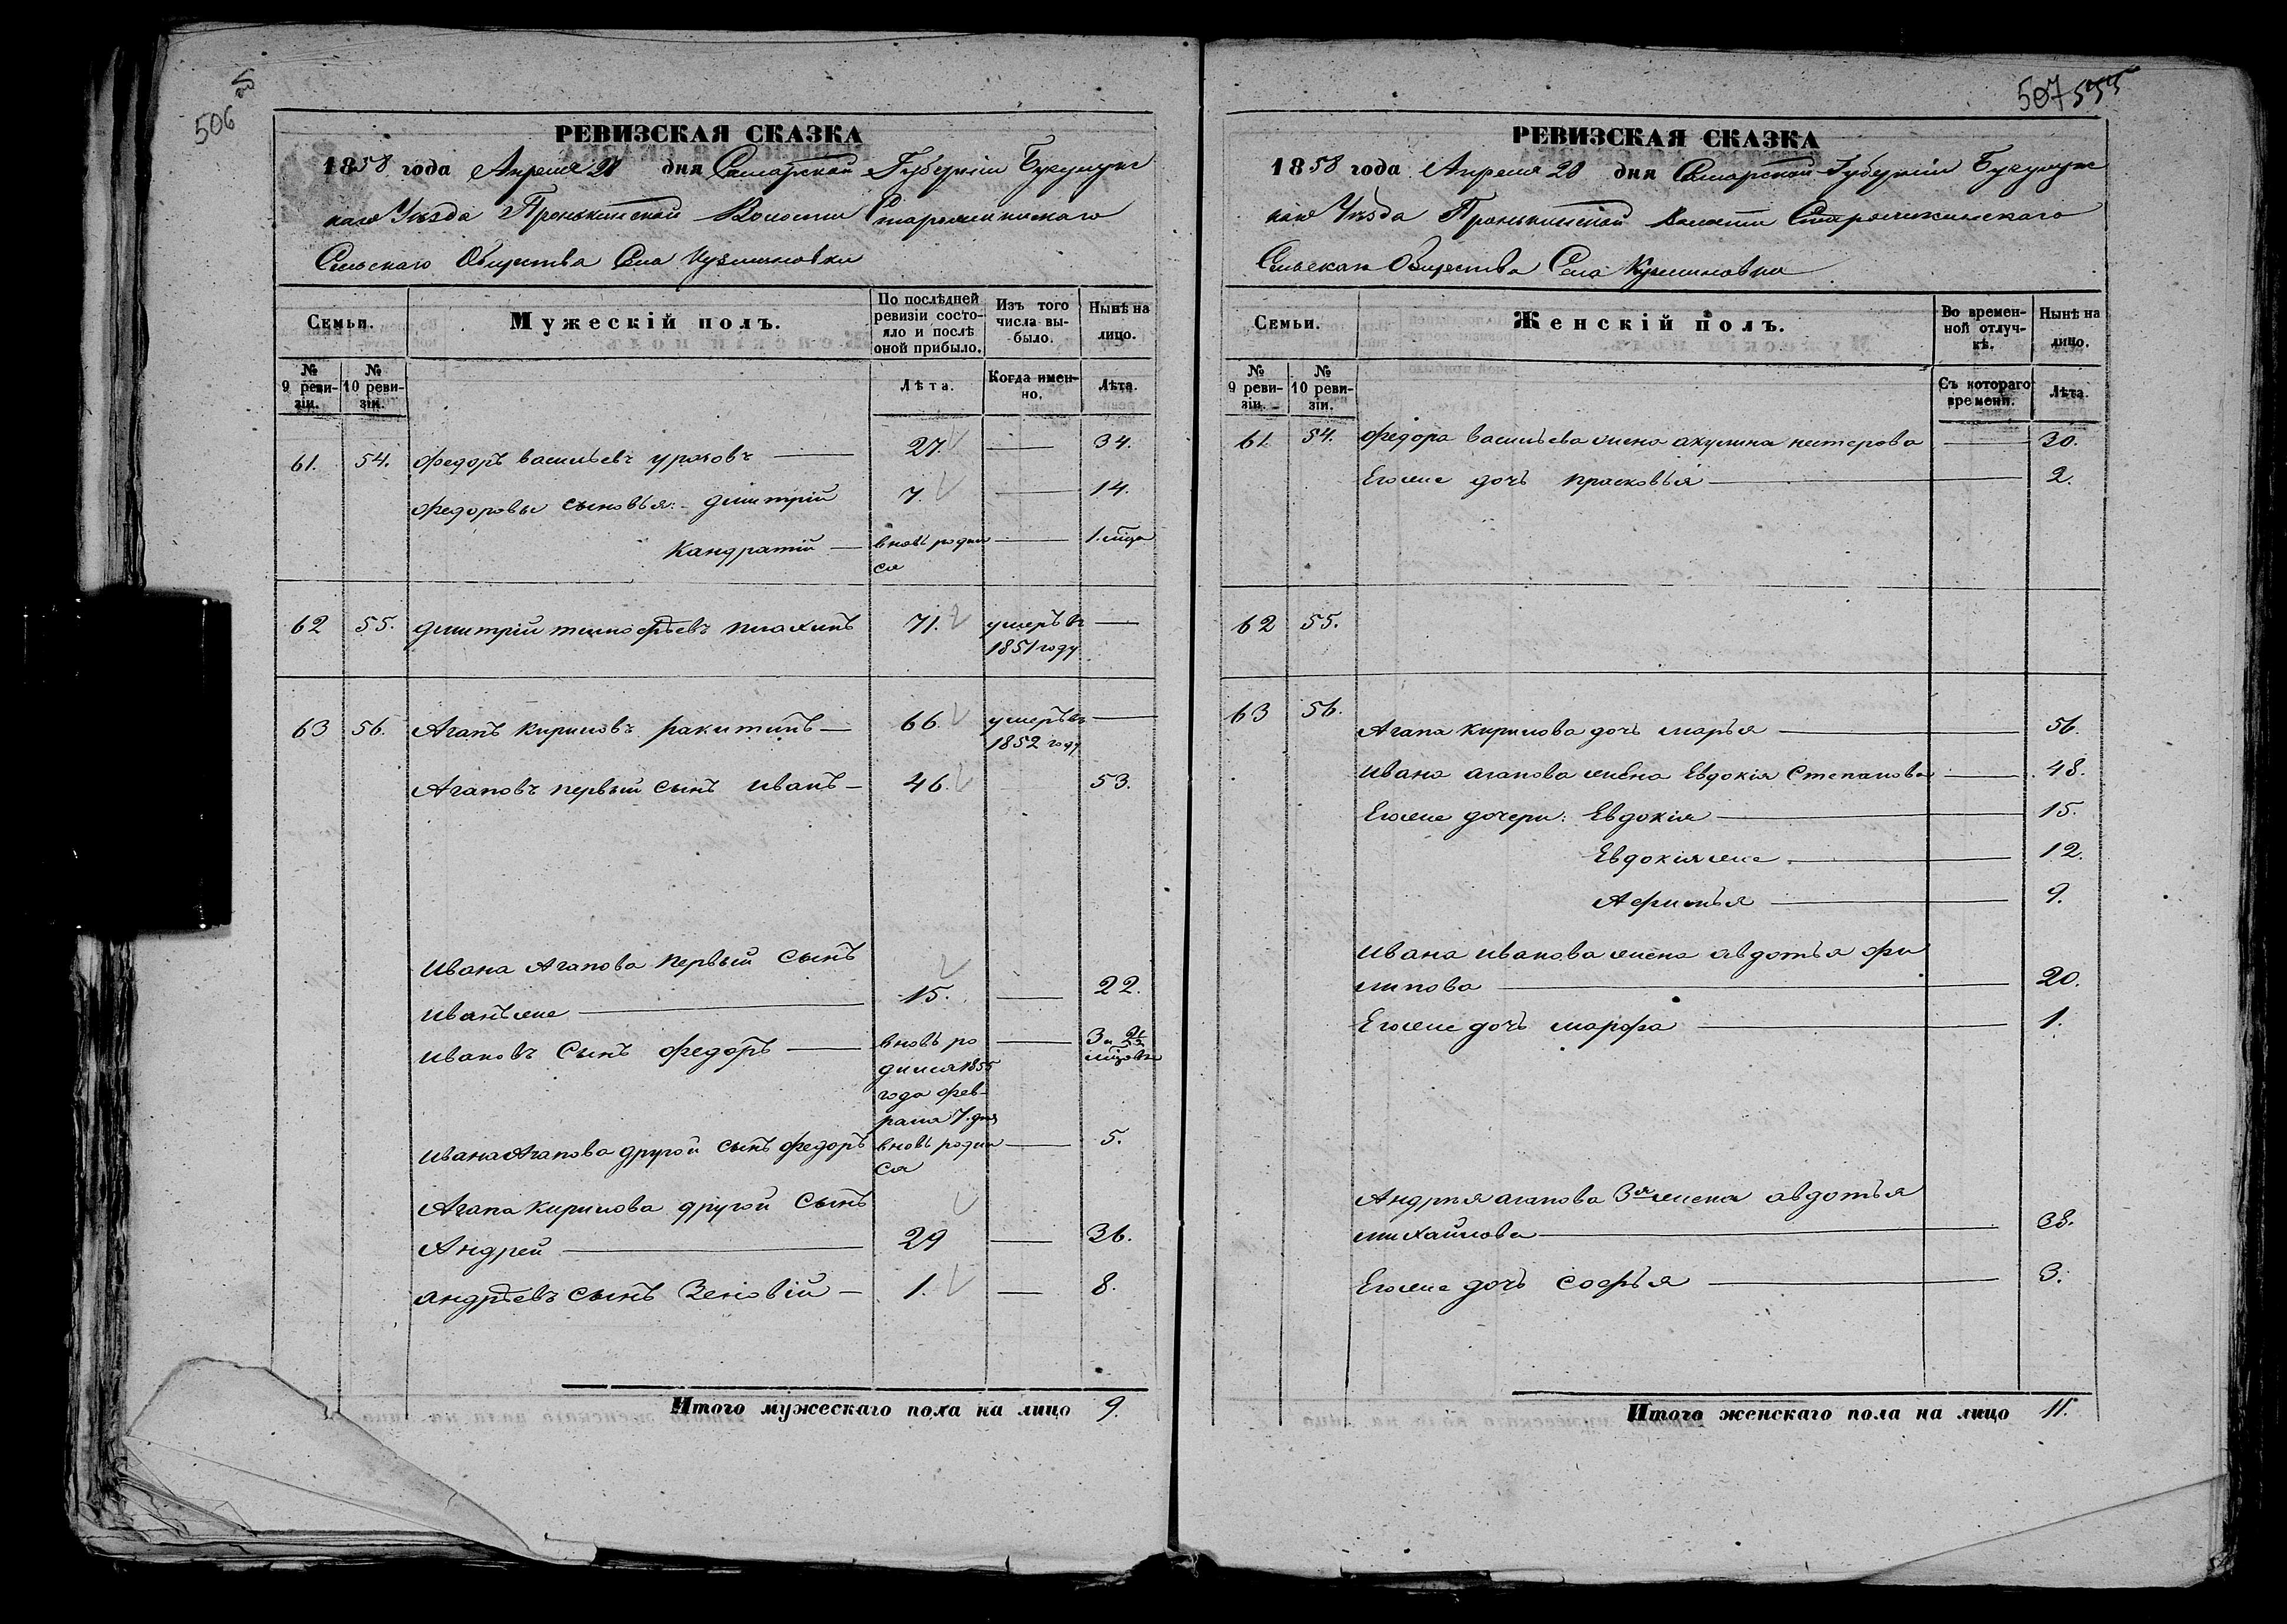 506
РЕВИЗСКАЯ СКАЗКА
1858 года Апреля 20 дня Самарской Губерніи Бугурус
каго Уезда Пронькинской Волости
Сельскаго Общества Села Кузминовки
Семьи.
Мужескій полъ.
По послѣдней ревизіи состояло и послѣ оной прибыло.
Изъ того числа выбыло.
Нынѣ на лицо.
№ 9 ревизіи.
№ 10 ревизіи.
Лѣта.
Когда именно.
Лѣта.
61. 54. Федоръ васильевъ 27. 34.
Федоровы сыновья: дмитрій 7. 14.
Кандратій вновь родил 1. мца
ся
62 55. дмитрій тимофѣевъ 71. умеръ въ
1851 году
63 56. Агапъ кириловъ ракитинъ 66. умеръ въ
1852 году
Агаповъ первый сынъ иванъ 46. 53.
ивана Агапова первый сынъ
иванъ же 15. 22.
ивановъ Сынъ федоръ вновь ро 3 и 2½
дился 1855 мцовъ
года фев-
раля 7. дня
ивана Агапова другой сынъ федоръ вновь родил 5.
ся
Агапа кирилова другой сынъ
Андрей 29 36.
андрѣевъ сынъ Зеновій 1. 8.
Итого мужескаго пола на лицо 9.
507 555
РЕВИЗСКАЯ СКАЗКА
1858 года Апреля 20 дня Самарской Губерніи Бугурус
каго Уезда Пронькинской Волости
Сельскаго Общества Села Кузминовки
Семьи.
Женскій полъ.
Во временной отлучкѣ.
Нынѣ на лицо.
№ 9 ревизіи.
№ 10 ревизіи.
Съ котораго времени.
Лѣта.
61. 54. Федора васильева жена акулина нестерова 30.
Егоже дочь прасковья 2.
62 55.
63 56.
Агапа кирилова дочь марья 56.
ивана агапова жена Евдокія Степанова 48.
Егоже дочери: Евдокія 15.
Евдокія же 12.
Афимья 9.
ивана иванова жена авдотья фи
липова 20.
Егоже дочь марфа 1.
Андрея агапова 3я жена авдотья
михайлова 38.
Егоже дочь софья 3.
Итого женскаго пола на лицо 11.